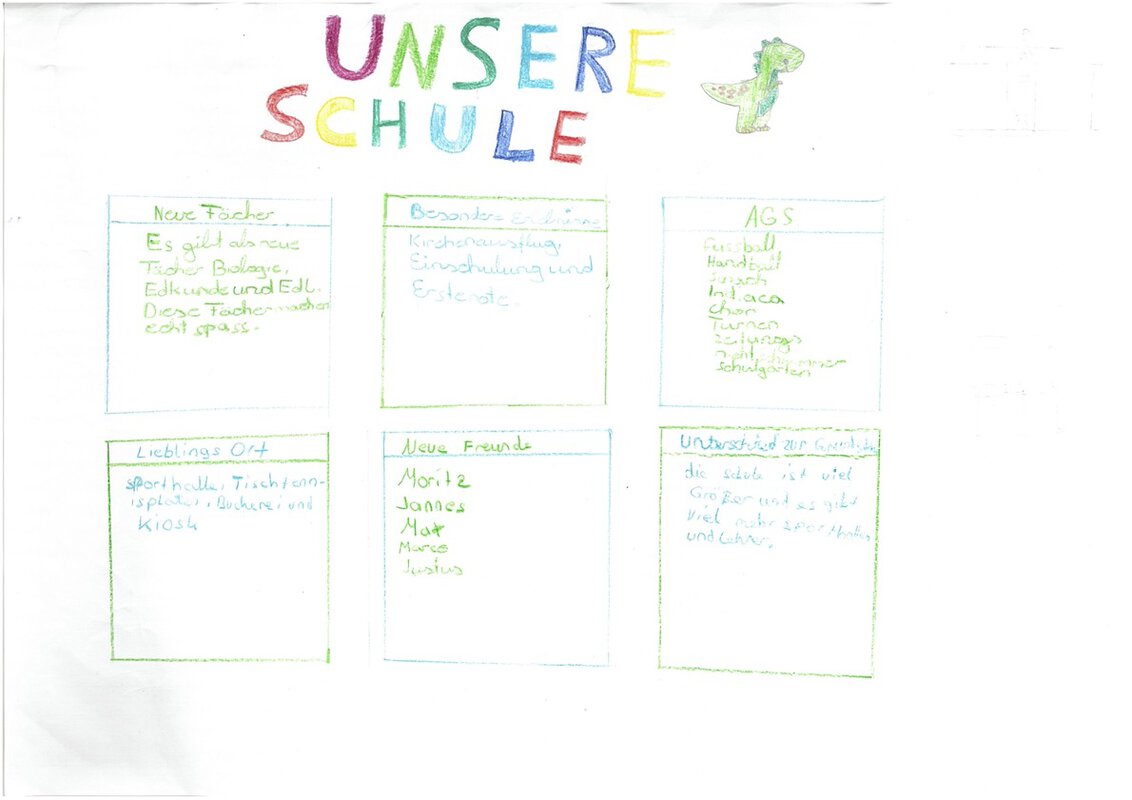 UNSERE
SCHULE
Neue Fächer
Es gibt als neue
Fächer Biologie,
Edkunde und Edl.
Diese Fächer machen
echt spass.
Besondere
Kirchenausflug,
Einschulung und
Erstenote.
AGS
Fussball
Handball
Indiaca
Chor
Turnen
Zeitungs
nicht schwimmer
Schulgarten
Lieblings Ort
sporthalle, Tischtenn-
isplatei, Bücherei und
Kiosk
Neue Freunde
Moritz
Jannes
Max
Marco
Justus
Unterschied zur
die schule ist viel
Größer und es gibt
viel mehr sporthallen
und Lehrer.